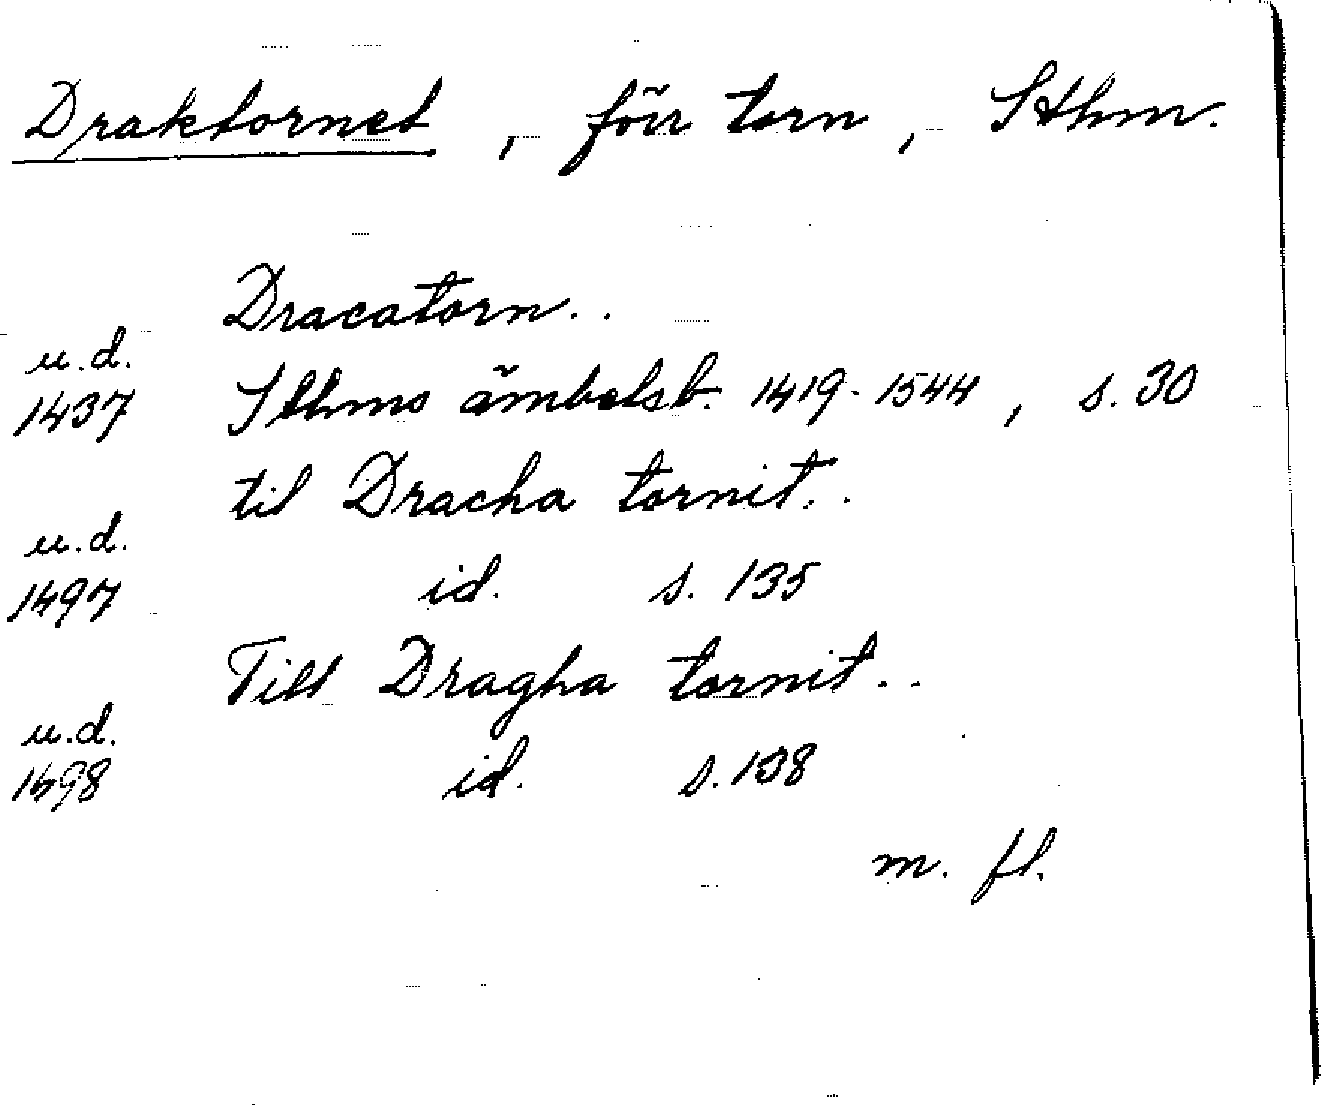 Draktornet, förr torn, Sthm.
Dracatorn..
u.d.
1437 Sthms ämbetsb. 1419-1544, s. 30
til Dracha tornit..
u.d.
1497 id. s. 135
Till Dragha tornit..
u.d.
1498 id. s. 138
m. fl.